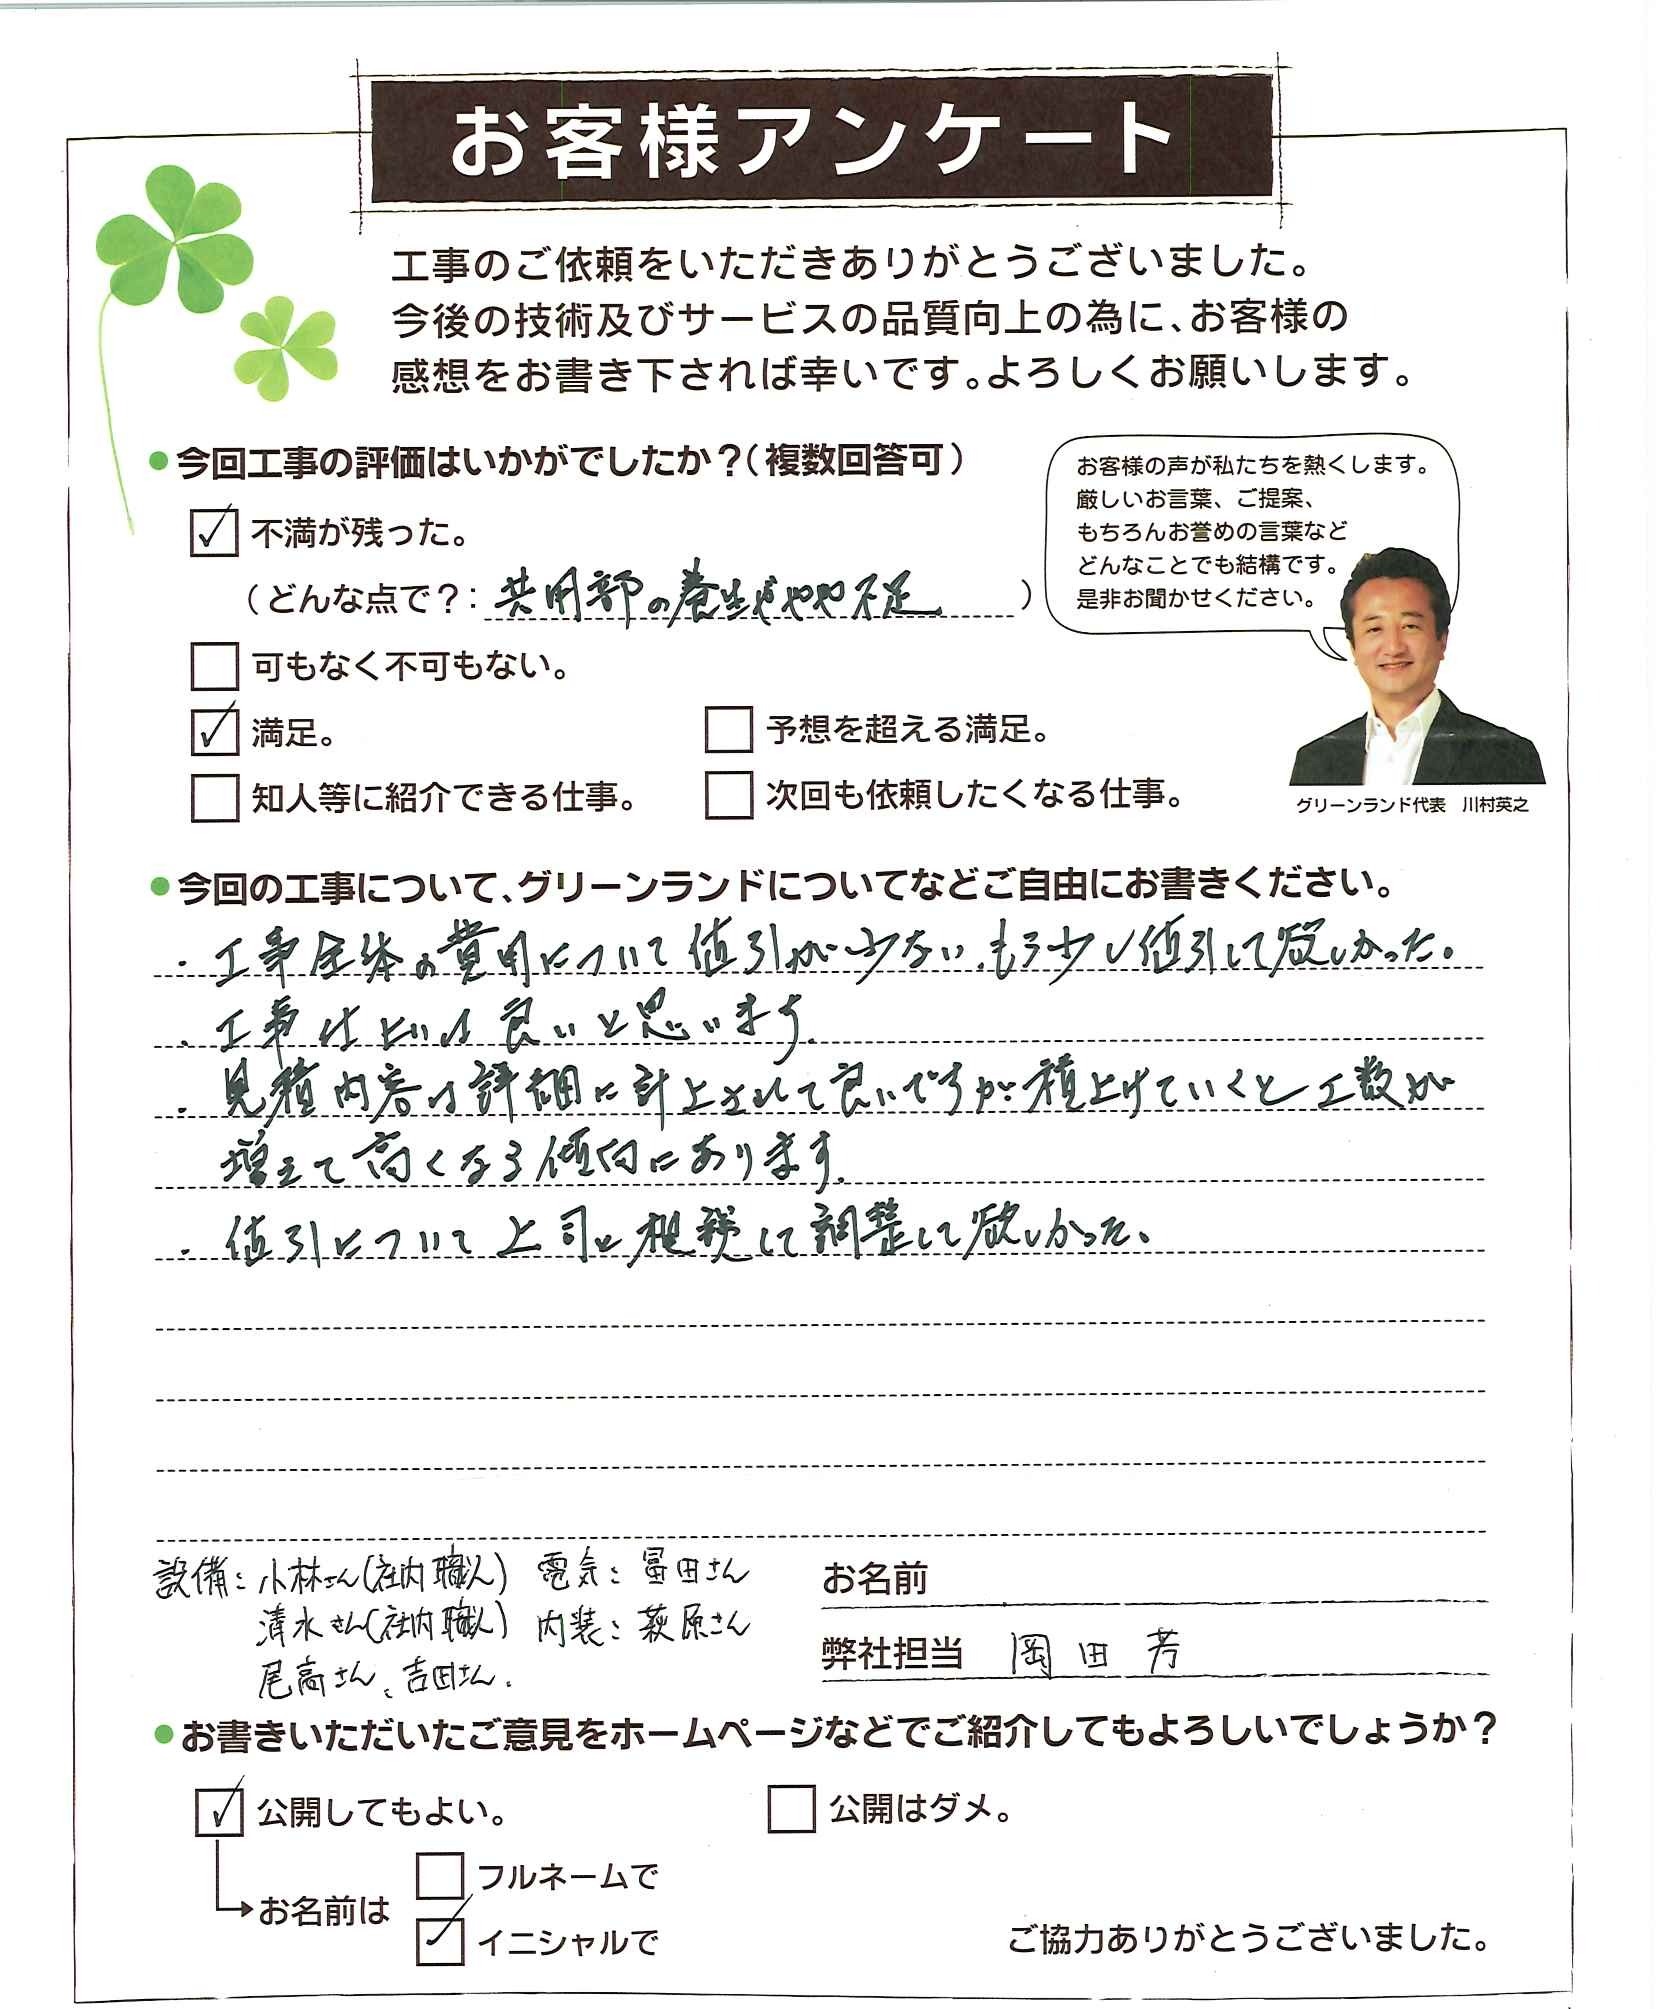 お客様アンケート
工事のご依頼をいただきありがとうございました。
今後の技術及びサービスの品質向上の為に、お客様の
感想をお書き下されば幸いです。よろしくお願いします。
●今回工事の評価はいかがでしたか？（複数回答可）
お客様の声が私たちを熱くします。
厳しいお言葉、ご提案、
もちろんお誉めの言葉など
どんなことでも結構です。
是非お聞かせください。
✓ 不満が残った。
（どんな点で？：共用部の養生がやや不足）
可もなく不可もない。
✓ 満足。
予想を超える満足。
知人等に紹介できる仕事。
次回も依頼したくなる仕事。
グリーンランド代表 川村英之
●今回の工事について、グリーンランドについてなどご自由にお書きください。
・工事全体の費用について値引が少ない。もう少し値引して欲しかった。
・工事仕上りは良いと思います。
・見積内容は詳細に計上されて良いですが積上げていくと工数が
増えて高くなる傾向にあります。
・値引について上司と相談して調整して欲しかった。
設備：小林さん（社内職人） 電気：冨田さん
清水さん（社内職人） 内装：萩原さん
尾高さん、吉田さん.
お名前
弊社担当 岡田 芳
●お書きいただいたご意見をホームページなどでご紹介してもよろしいでしょうか？
✓ 公開してもよい。
公開はダメ。
お名前は
フルネームで
✓ イニシャルで
ご協力ありがとうございました。